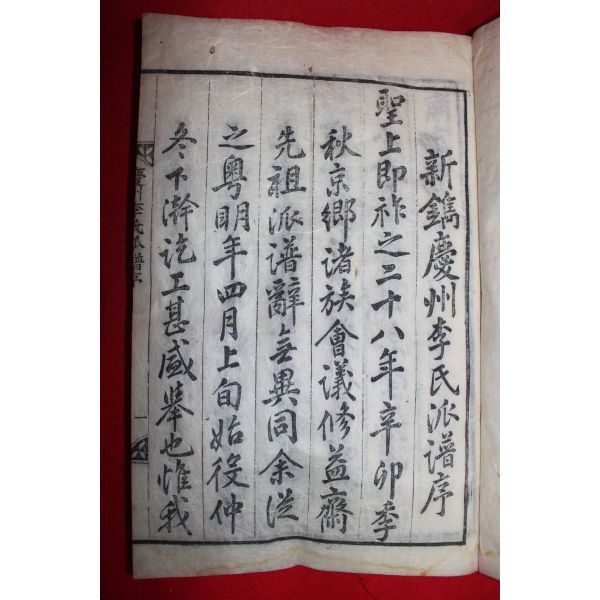 新鐫慶州李氏派譜序
聖上即祚之二十八年辛卯季
秋京鄉諸族會議修益齋
先祖派譜辭無異同余從
之粵明年四月上旬始役仲
冬下澣訖工甚盛擧也惟我
慶州李氏派譜序
一